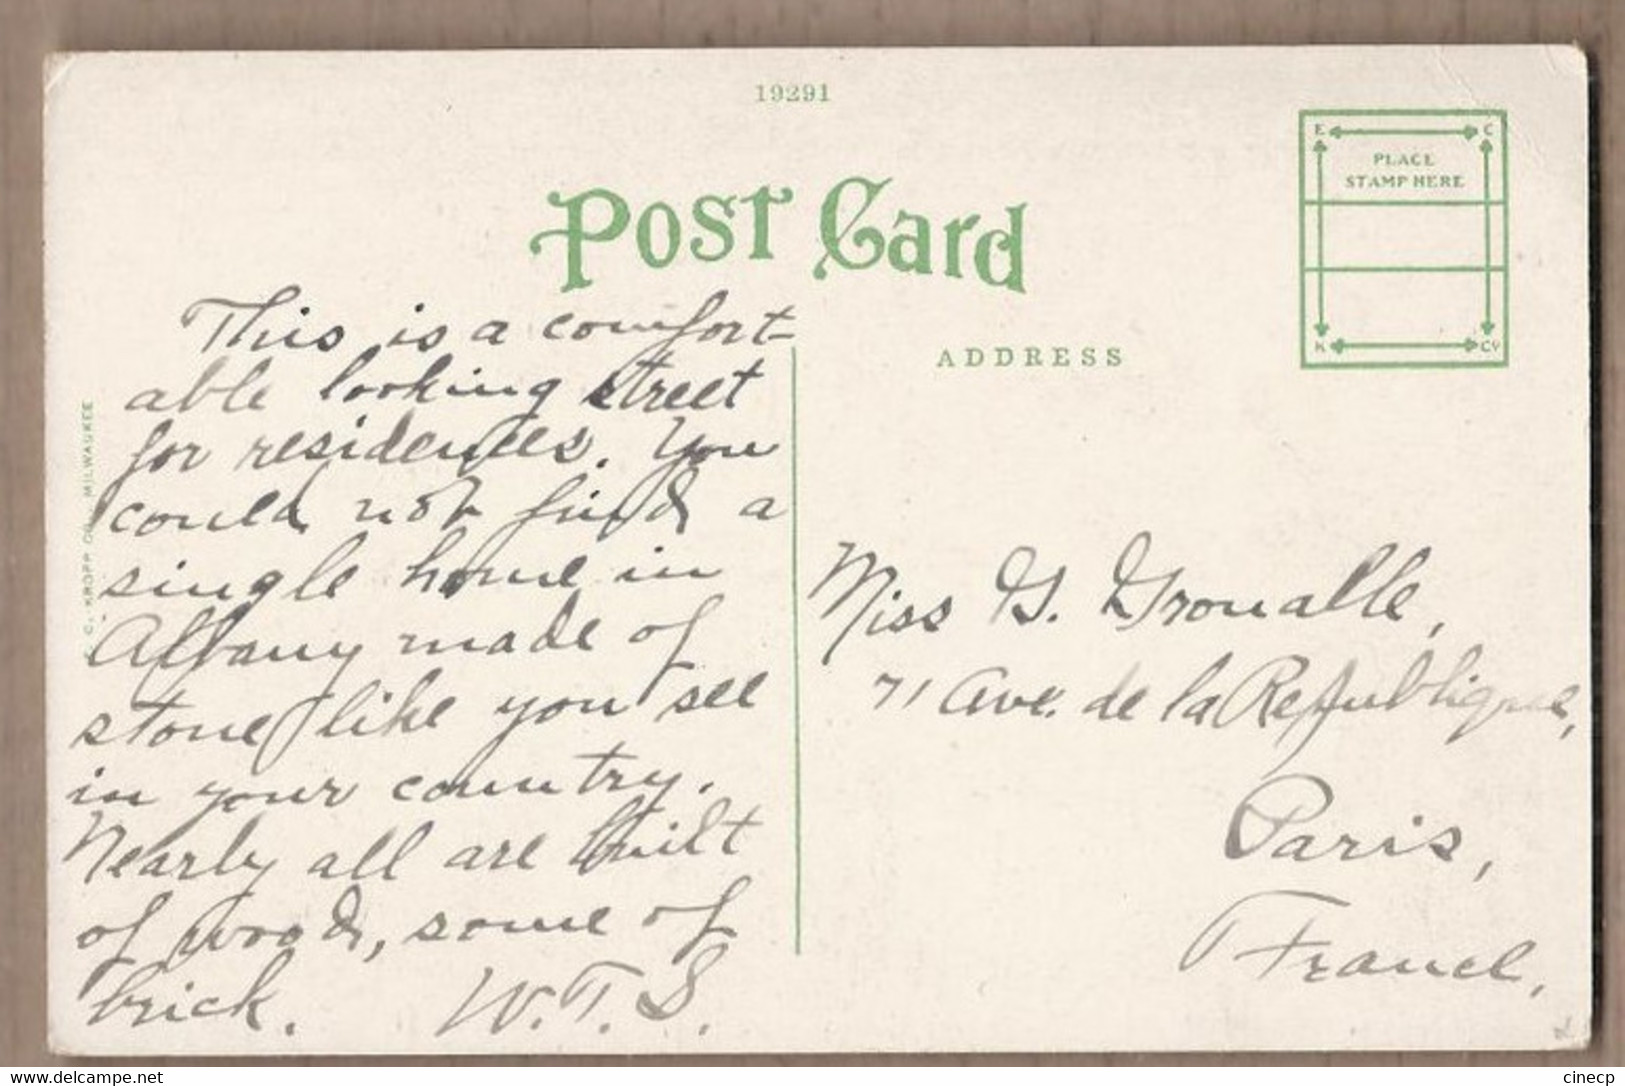 19291
Post Card
E C
PLACE
STAMP HERE
K CV
ADDRESS
E. C. KROPP CO. MILWAUKEE
This is a comfort-
able looking street
for residences. You
could not find a
single home in
Albany made of
stone like you see
in your country.
Nearly all are built
of wood, some of
brick. W.T.S.
Miss G. Gronalle,
71 Ave. de la Republique,
Paris,
France,
www.delcampe.net
cinecp